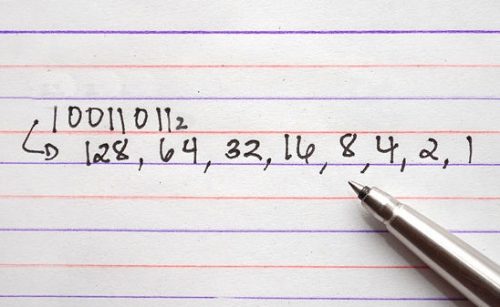 10011011₂
128, 64, 32, 16, 8, 4, 2, 1